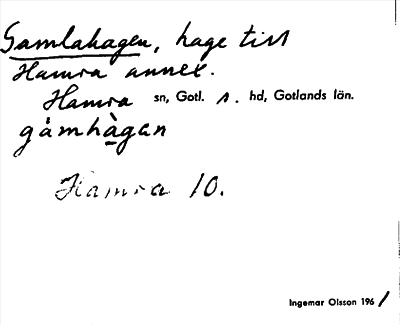 Gamlahagen, hage till
Hamra annex.
Hamra sn, Gotl. s. hd, Gotlands län.
gåmhàgan
Hamra 10.
Ingemar Olsson 1961